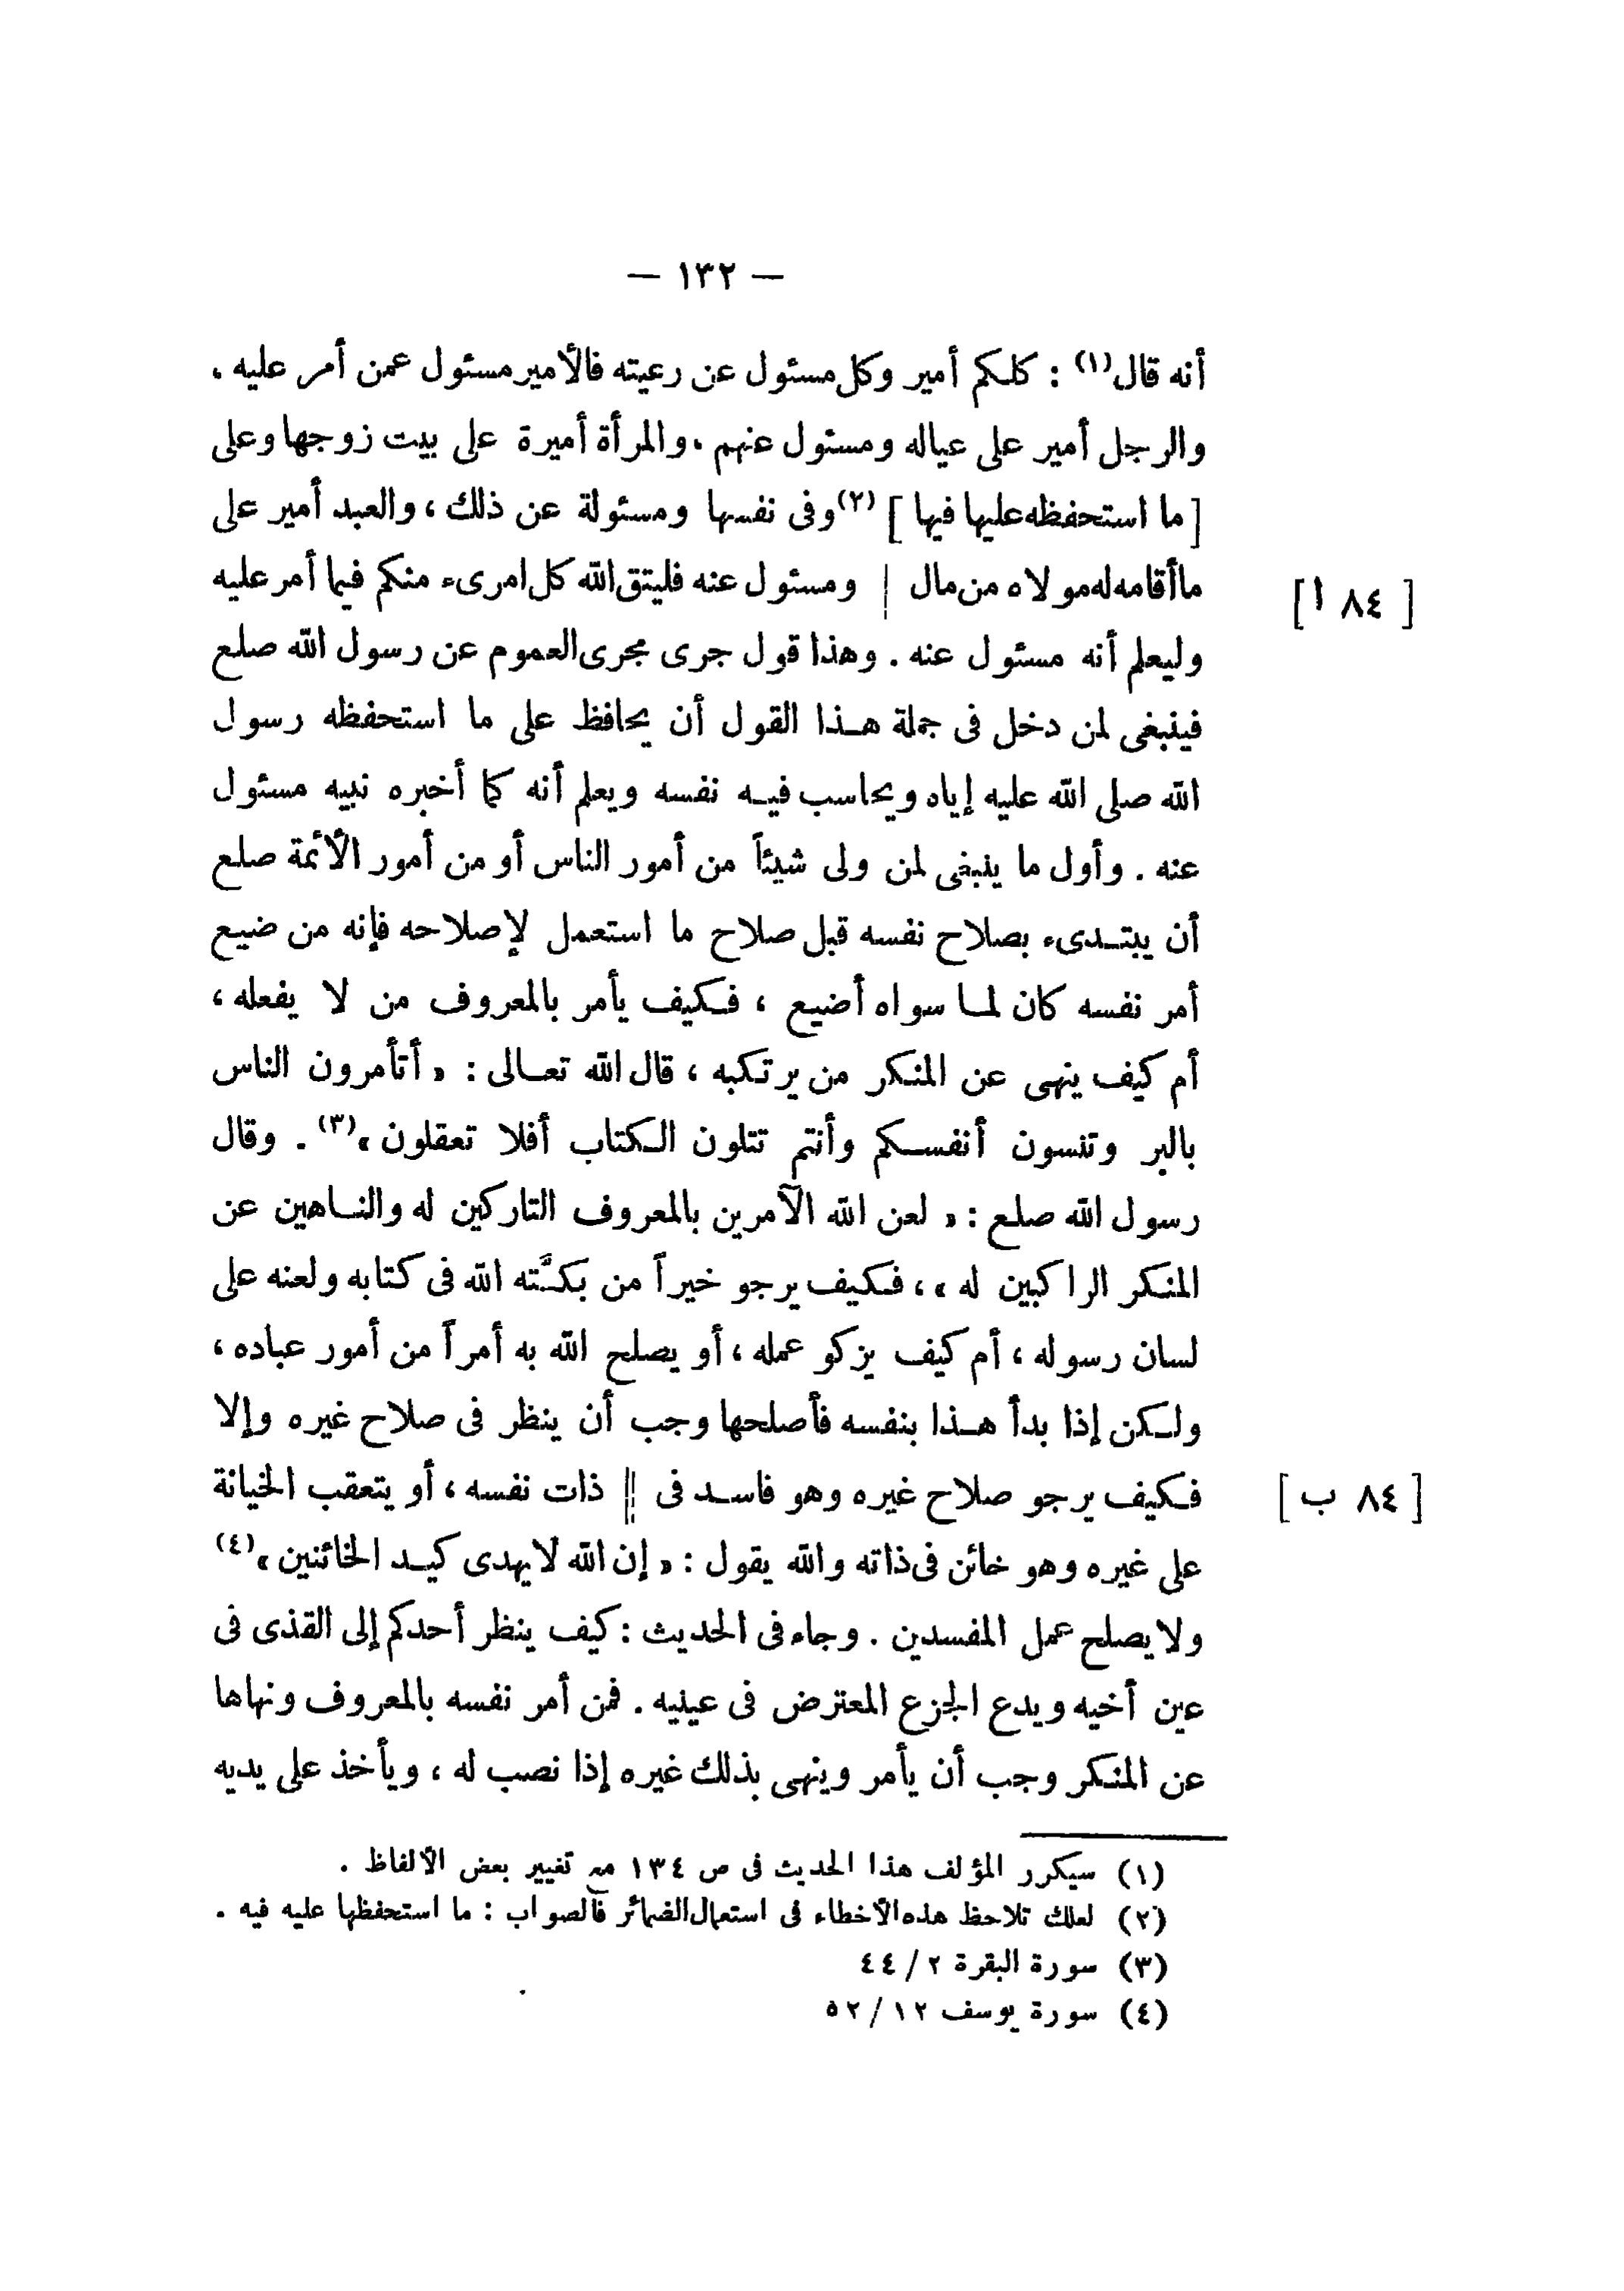 — ١٣٢ —
أنه قال(١) : كلكم أمير وكل مسئول عن رعيته فالأمير مسئول عمن أمر عليه ،
والرجل أمير على عياله ومسئول عنهم ، والمرأة أميرة على بيت زوجها وعلى
[ ما استحفظه عليها فيها ](٢) وفى نفسها ومسئولة عن ذلك ، والعبد أمير على
ما أقامه له مولاه من مال | ومسئول عنه فليتق الله كل امرىء منكم فيما أمر عليه
[ ٨٤ أ ]
وليعلم أنه مسئول عنه . وهذا قول جرى مجرى العموم عن رسول الله صلع
فينبغى لمن دخل فى جملة هـذا القول أن يحافظ على ما استحفظه رسول
الله صلى الله عليه إياه ويحاسب فيـه نفسه ويعلم أنه كما أخبره نبيه مسئول
عنه . وأول ما ينبغى لمن ولى شيئاً من أمور الناس أو من أمور الأئمة صلع
أن يبتـدىء بصلاح نفسه قبل صلاح ما استعمل لإصلاحه فإنه من ضيـع
أمر نفسه كان لمـا سواه أضيع ، فـكيف يأمر بالمعروف من لا يفعله ،
أم كيف ينهى عن المنـكر من يرتكبه ، قال الله تعـالى : « أتأمرون الناس
بالبر وتنسون أنفسـكم وأنتم تتلون الـكتاب أفلا تعقلون »(٣) . وقال
رسول الله صلع : « لعن الله الآمرين بالمعروف التاركين له والنـاهين عن
المنـكر الراكبين له » ، فـكيف يرجو خيراً من بكـَّته الله فى كتابه ولعنه على
لسان رسوله ، أم كيف يزكو عمله ، أو يصلح الله به أمراً من أمور عباده ،
ولـكن إذا بدأ هـذا بنفسه فأصلحها وجب أن ينظر فى صلاح غيره وإلا
فـكيف يرجو صلاح غيره وهو فاسـد فى || ذات نفسه ، أو يتعقب الخيانة
[ ٨٤ ب ]
على غيره وهو خائن فى ذاته والله يقول : « إن الله لا يهدى كيـد الخائنين »(٤)
ولا يصلح عمل المفسدين . وجاء فى الحديث : كيف ينظر أحدكم إلى القذى فى
عين أخيه ويدع الجزع المعترض فى عينيه . فمن أمر نفسه بالمعروف ونهاها
عن المنـكر وجب أن يأمر وينهى بذلك غيره إذا نصب له ، ويأخذ على يديه
(١) سيكرر المؤلف هذا الحديث فى ص ١٣٤ مع تغيير بعض الألفاظ .
(٢) لعلك تلاحظ هذه الأخطاء فى استعمال الضمائر فالصواب : ما استحفظها عليه فيه .
(٣) سورة البقرة ٢ / ٤٤
(٤) سورة يوسف ١٢ / ٥٢